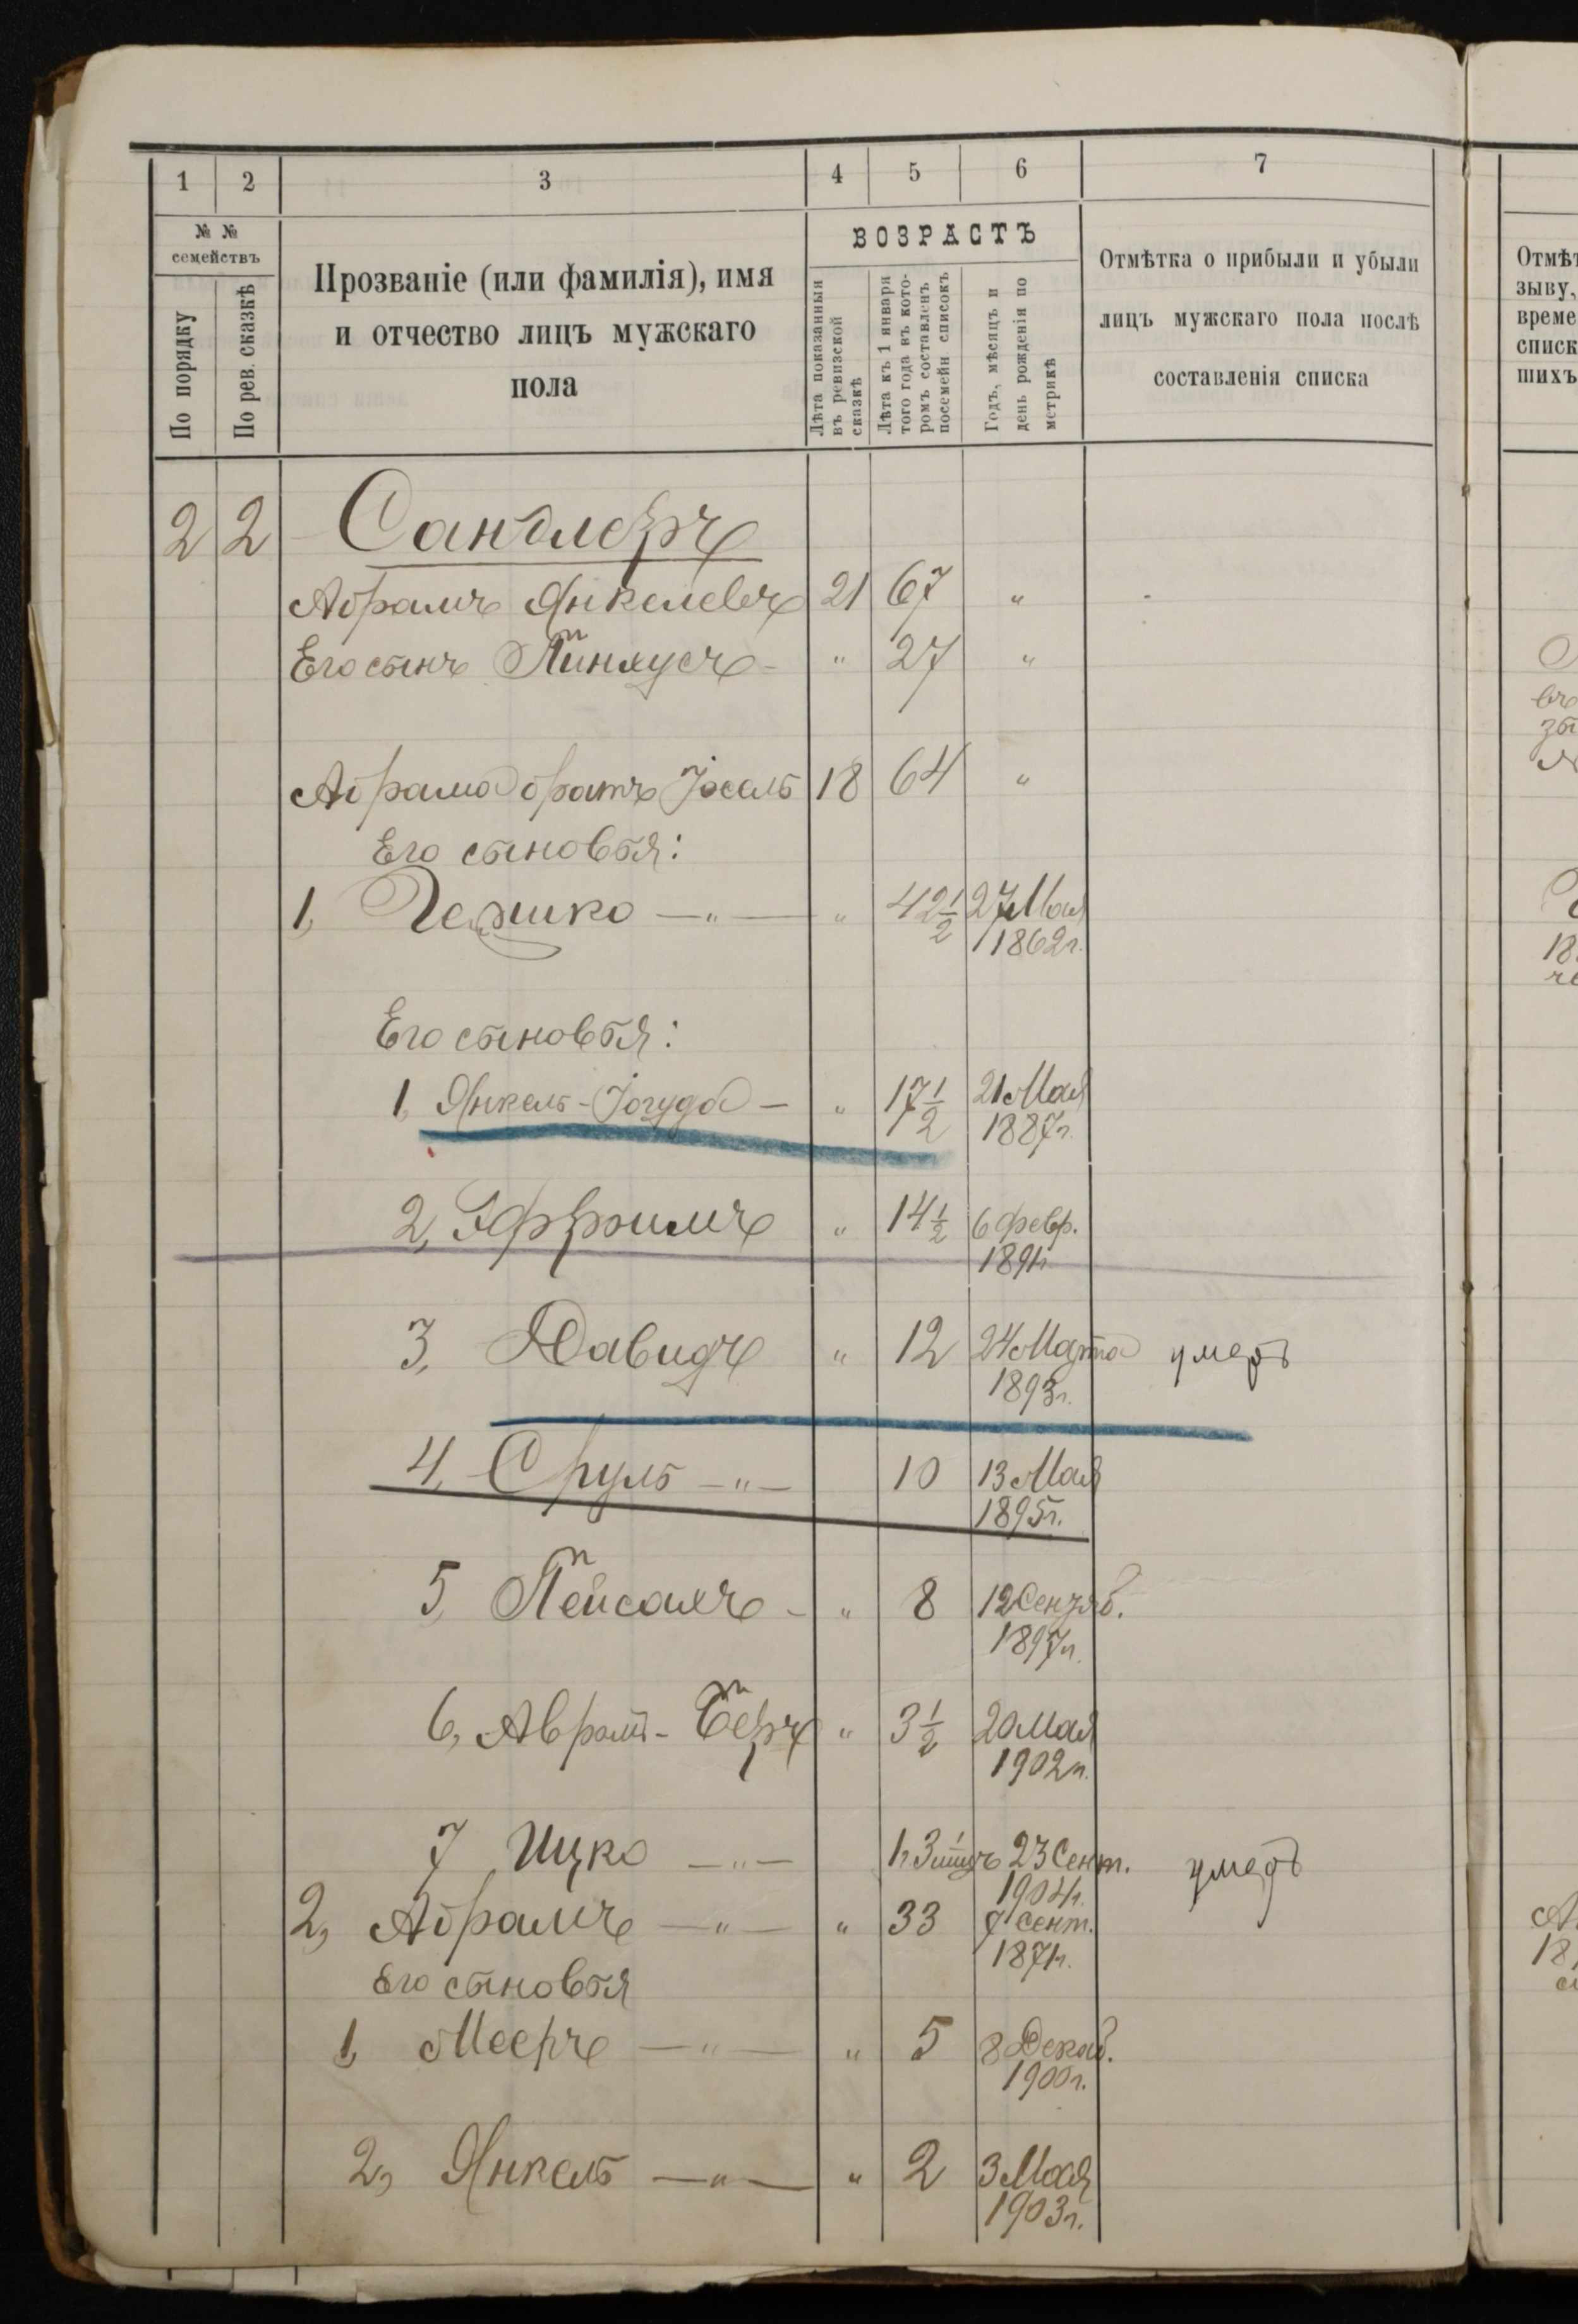 1 2 3 4 5 6 7
№ №
семействъ
По порядку
По рев. сказкѣ
Прозваніе (или фамилія), имя
и отчество лицъ мужскаго
пола
ВОЗРАСТЪ
Лѣта показанныя
въ ревизской
сказкѣ
Лѣта къ 1 января
того года въ кото-
ромъ составленъ
посемейн списокъ
Годъ, мѣсяцъ и
день рожденія по
метрикѣ
Отмѣтка о прибыли и убыли
лицъ мужскаго пола послѣ
составленія списка
2 2 Сандлеръ
Абрамъ Янкелевъ 21 67 "
Его сынъ Пинхусъ - " 27 "
Абрама братъ Іосель 18 64 "
Его сыновья:
1, Гершко — " — " 42 1/2 27 Мая
1862 г.
Его сыновья:
1, Янкель-Іогуда — " 17 1/2 21 Мая
1887 г.
2, Эфроимъ " 14 1/2 6 февр.
1891 г.
3, Давидъ " 12 24 Марта умеръ
1893 г.
4, Сруль — " — 10 13 Мая
1895 г.
5, Пейсахъ - " 8 12 Сентяб.
1897 г.
6, Аврам- Беръ " 3 1/2 20 Мая
1902 г.
7 Ицко — " — 23 Сент. умеръ
1904 г.
2, Абрамъ — " — " 33 7 Сент.
1871 г.
Его сыновья
1, Мееръ — " — " 5 8 Декаб.
1900 г.
2, Янкель — " — " 2 3 Мая
1903 г.
Отмѣт
зыву,
време
списк
шихъ